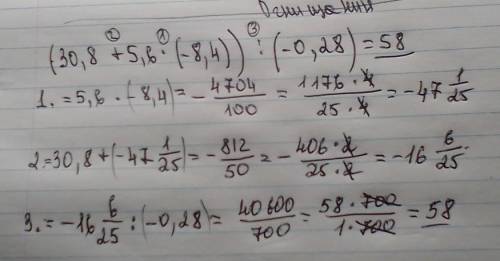 (30,8 + 5,6 · (-8,4)) : (-0,28) = 58
1. = 5,6 · (-8,4) = - 4704/100 = 1176 · 4/25 · 4 = -47 1/25
2 = 30,8 + (-47 1/25) = - 812/50 = - 406 · 2/25 · 2 = -16 6/25.
3. = -16 6/25 : (-0,28) = 40600/700 = 58 · 700/1 · 700 = 58